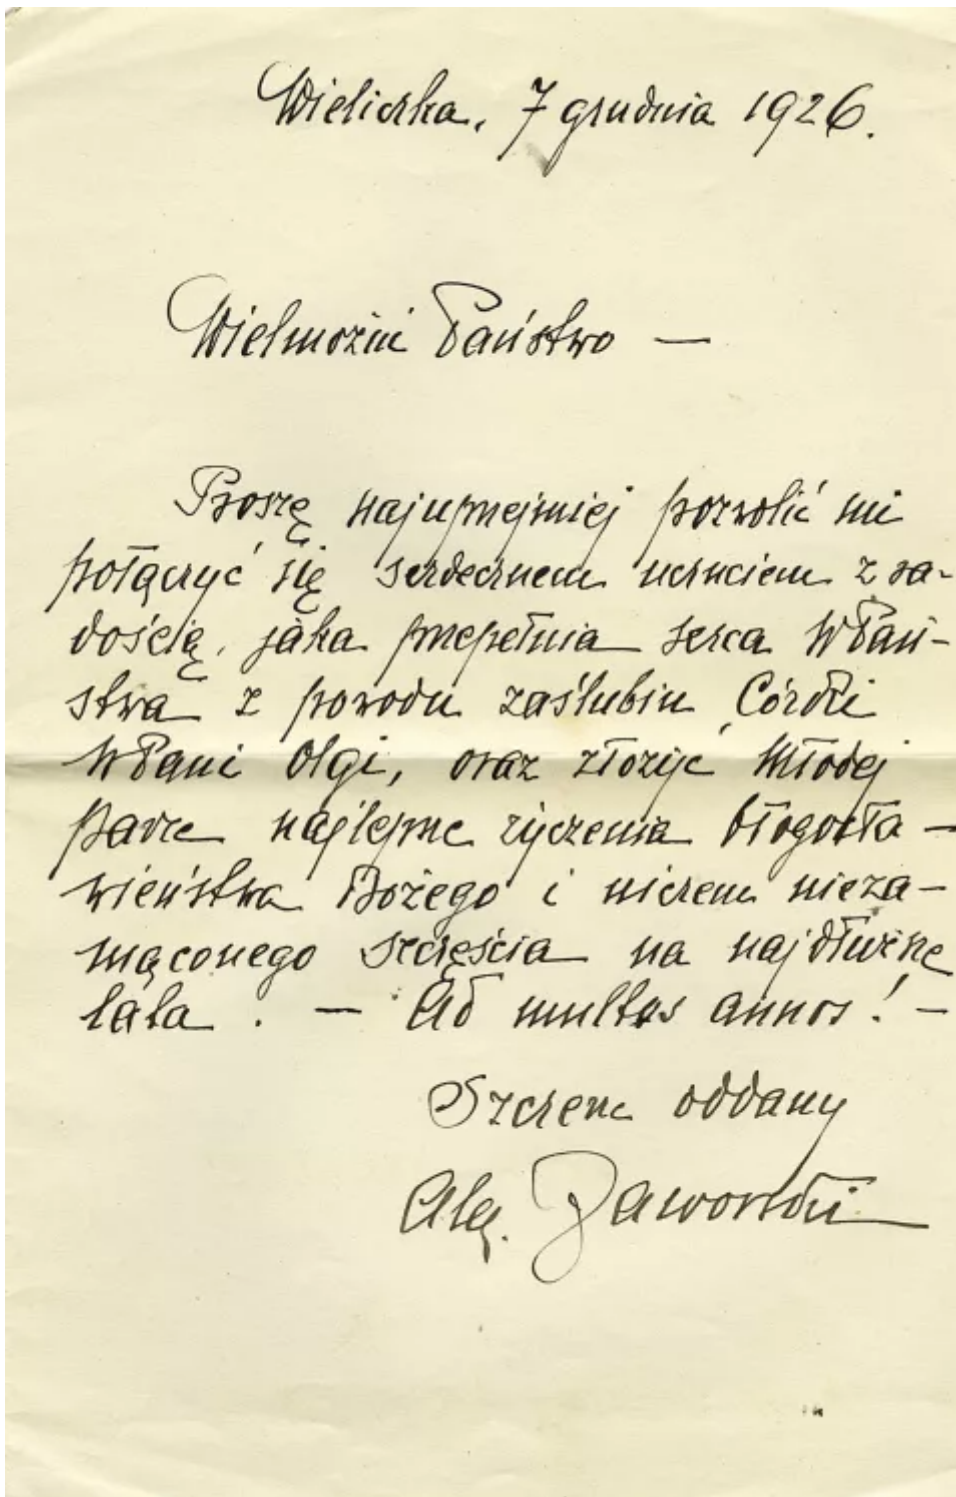 Wieliczka, 7 grudnia 1926.
Wielmożni Państwo —
Proszę najuprzejmiej pozwolić mi
połączyć się serdecznem uczuciem z ra-
dością, jaka przepełnia serca WPań-
stwa z powodu zaślubin Córki
WPani Olgi, oraz złożyć Młodej
Parze najlepsze życzenia błogosła-
wieństwa Bożego i niczem nieza-
mąconego szczęścia na najdłuższe
lata. — Ad multos annos! —
Szczerze oddany
Jaworski